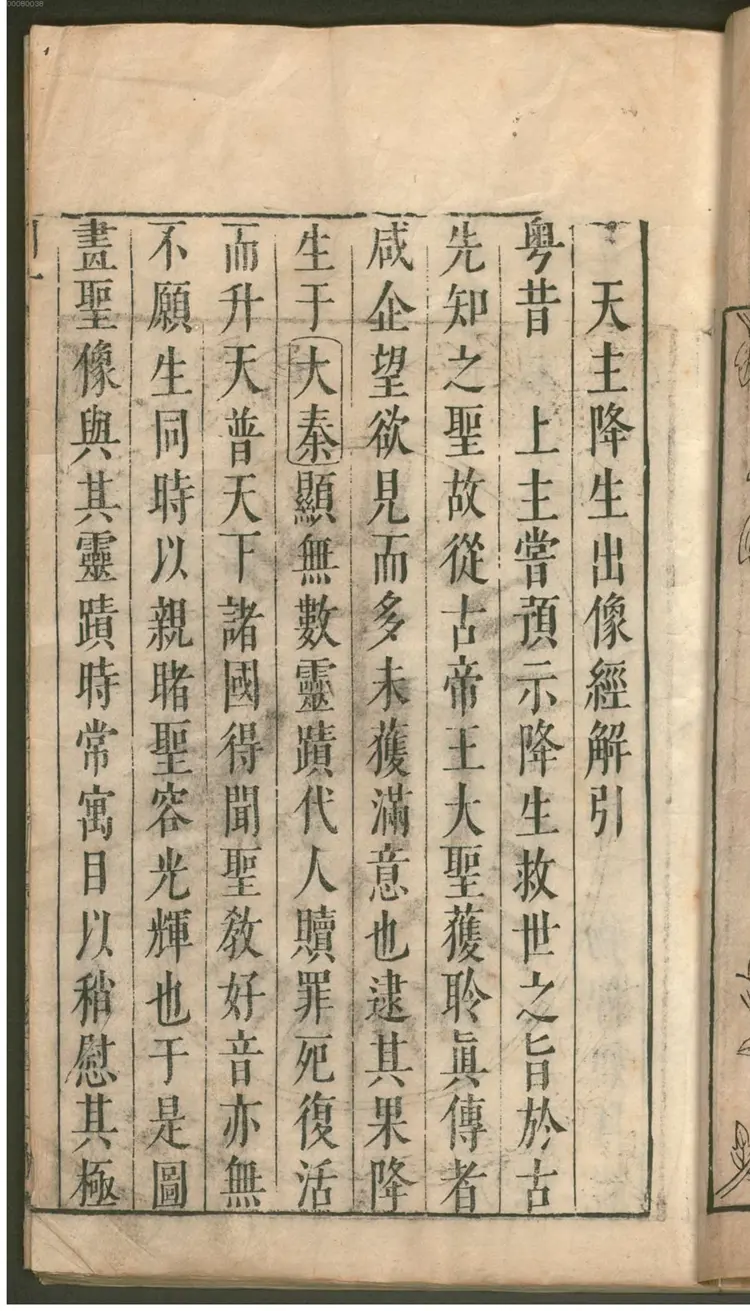 00080038
天主降生出像經解引
粤昔　上主嘗預示降生救世之旨於古
先知之聖故從古帝王大聖獲聆眞傳者
咸企望欲見而多未獲滿意也逮其果降
生于大秦顯無數靈蹟代人贖罪死復活
而升天普天下諸國得聞聖教好音亦無
不願生同時以親睹聖容光輝也于是圖
畫聖像與其靈蹟時常寓目以稍慰其極